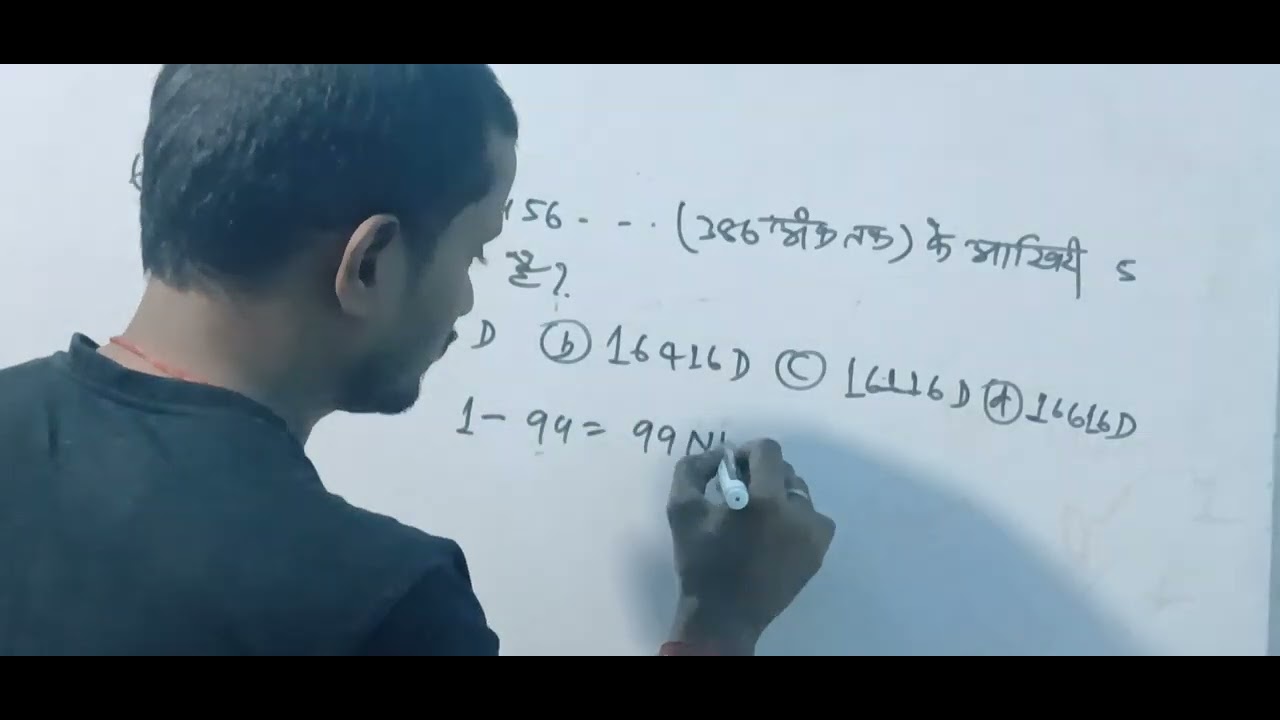 156 - - - . (386 अंक तक) के आखिरी 5
है ?
D (b) 16416D (C) 16116D (d) 16616D
1 - 99 = 99 N